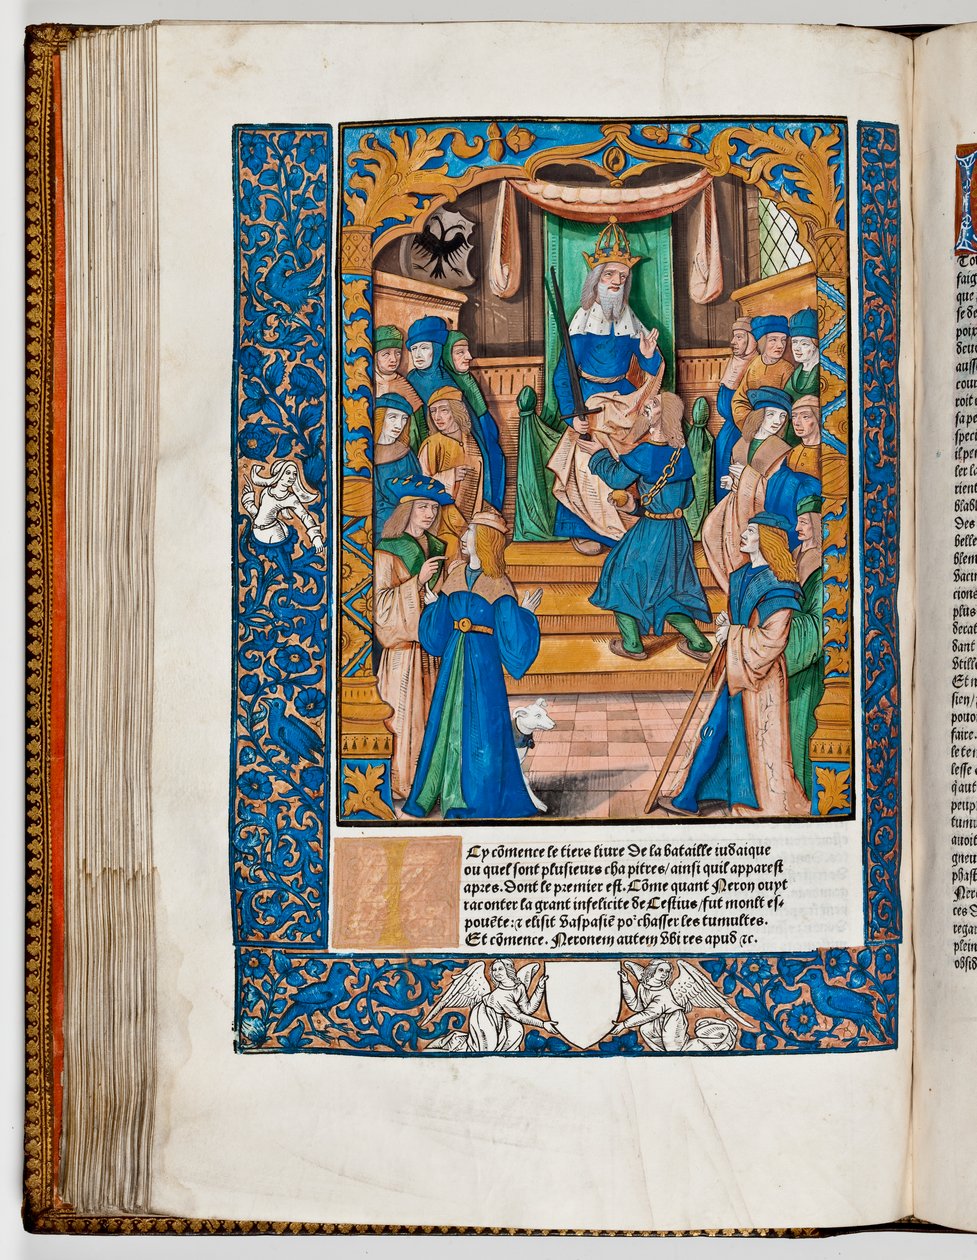 Cy cõmence le tiers liure de la bataille iudaique
ou quel sont plusieurs cha pitres/ainsi quil apparest
apres. Dont le premier est. Cõme quant Neron ouyt
raconter la grant infelicite de Cestius/fut moult es-
pouẽte: ⁊ elisit Vaspasiẽ po᷑ chasser les tumultes.
Et cõmence. Neronem autem Vbi res apud ⁊c.
I
faig
que
se de
aussi
cour
roit
sa pe
spect
il per
ler la
rient
blabl
Des
belle
blem
cions
plus
decat
dant
Et n
sien/
pouo
faire.
le te
lesse
peup
tum
auoit
gneu
Nero
ces d
regar
plein
obsid